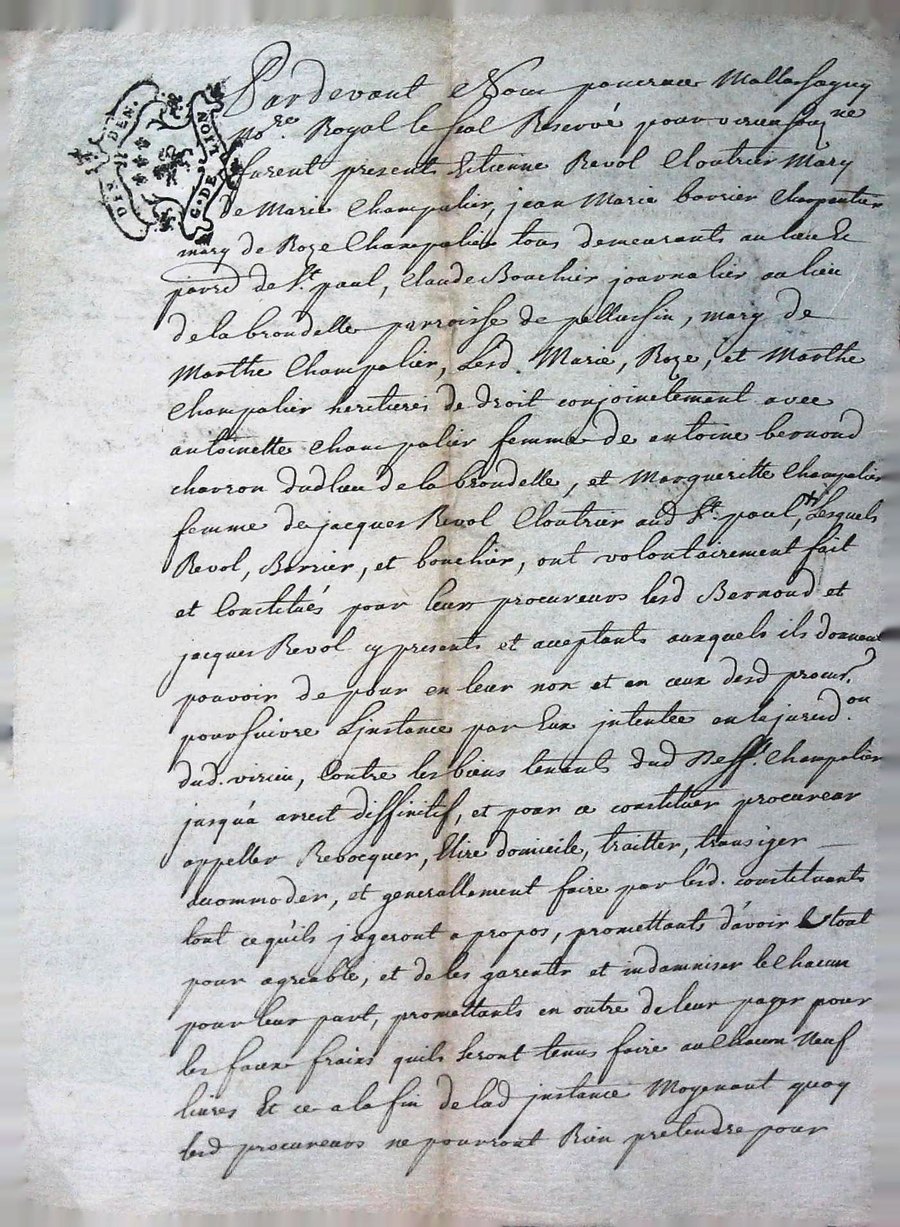 DIX DEN.
G. DE LION
Pardevant Nous Mallassagny
no.re Royal le seul Reservé pour virieu
furent present Etienne Revol Cloutrier Mary
de Marie Champalier, jean Marie borrier Charpentier
mary de Roze Champalier tous demeurants au lieu Et
parr.d de S.t paul, Claude Bouchier journalier au lieu
de la brondelle parroisse de pellussin, mary de
Marthe Champalier, Lesd. Marie, Roze, et Marthe
Champalier heritieres de droit conjoinctement avec
antoinette Champalier femme de antoine bernond
charron dud lieu de la brondelle, et Margueritte Champalier
femme de jacques Revol Cloutrier aud S.t paul, Lesquels
Revol, Borrier, et bouchier, ont volontairement fait
et Constitués pour leurs procureurs lesd Bernond et
jacques Revol cy presents et acceptants auxquels ils donnent
pouvoir de pour en leur non et en ceux desd procur.
poursuivre L'instance par Eux intentée en la jurisd.on
dud. virieu, Contre les biens tenants dud Champalier
jusqu'a arrest diffinitif, et pour ce constituer procureur
appeller Revocquer, Elire domicile, traitter, transiger
accommoder, et generallement faire par lesd. constituants
tout ce quils jugeront a propos, promettants d'avoir le tout
pour agreable, et de les garentir et indamniser le Chacun
pour leur part, promettants en outre de leur payer pour
les faux fraix quils seront tenus faire au Chacun Neuf
livres Et ce a la fin de lad instance Moyenant quoy
lesd procureurs ne pourront Rien pretendre pour